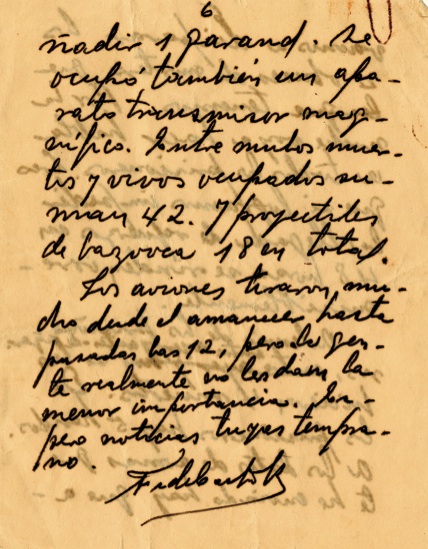 6
ñadir 1 garand. Se
ocupó también un apa-
rato transmisor mag-
nífico. Entre mulos muer-
tos y vivos ocupados su-
man 42. Y proyectiles
de bazooca 18 en total.
Los aviones tiraron mu-
cho desde el amanecer hasta
pasadas las 12, pero la gen-
te realmente no les dan la
menor importancia. Es-
pero noticias tuyas tempra-
no.
Fidel